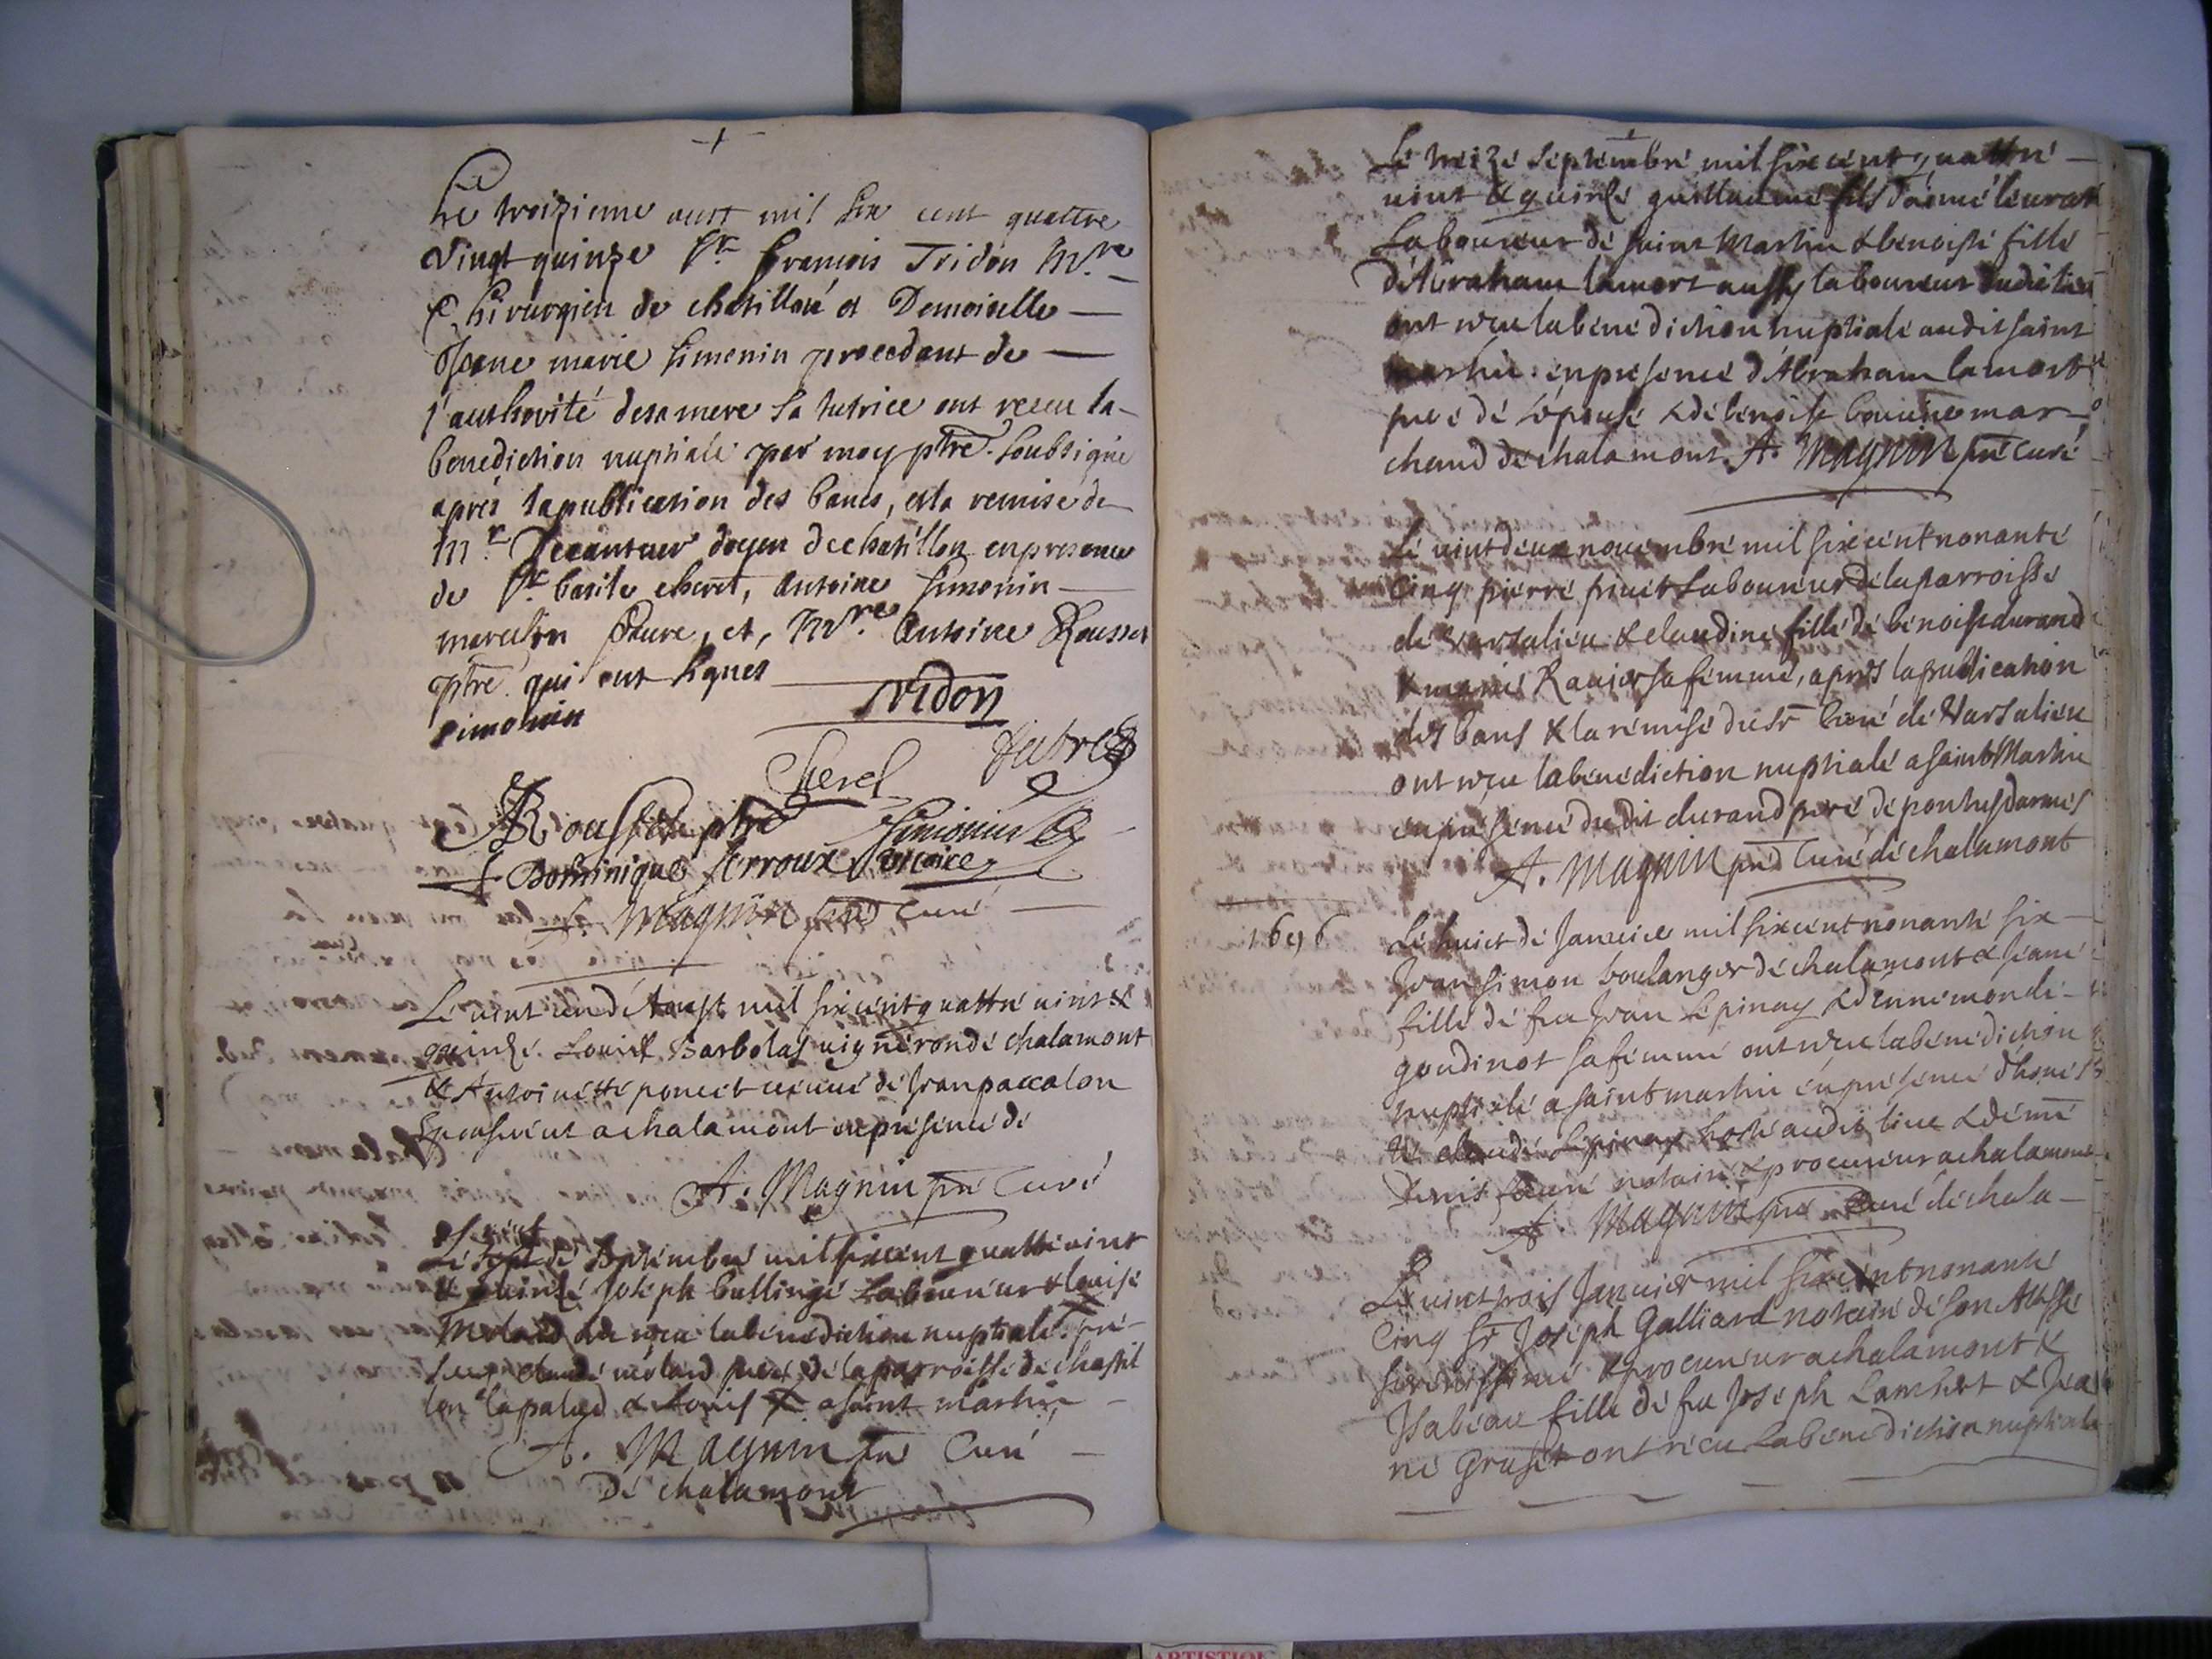 Le troizieme aust mil six cent quattre
Vingt quinze Sr. francois Tridon Mre.
Chirurgien de chatillon et Demoiselle
Jeane marie Simonin procedant de
l'authorité desamere sa tutrice ont receu la
benediction nuptiale par moy ptre. soubsigne
aprés lapublication des bancs, et la remise de
Mr. doyen dechatillon enpresence
de Sr. basile cheret, antoine Simonin
faure, et, Mre. Antoine Rousset
ptre. qui ont signes
simonin
Tridon
Cherel
fabre
Rousset ptre Simonin
Dominique ferroux
A. Magnin pre Curé
Le vint un de Aoust mil six cent quattre vint &
quinze. Louis Barbolas vigneron de chalamont
& Antoinette poncet veuve de Jvan paccalon
Epouserent a chalamont en présence de
A. Magnin pre Curé
Le sept de Septembre mil sixcent quattrevint
& quinze Joseph bullinge Laboureur & louise
molard on receu la benediction nuptiale. pré-
sent claude molard pere de la parroisse de chastil
lon lapalud & Louis a saint martin
A. Magnin pre Curé
de chalamont
Le treize septembre mil six cent quattre
vint & quinze guillaume fils d'aimé leurat
Laboureur de saint Martin & benoiste fille
d'Abraham lamort aussy laboureur dudit lieu
ont receu la bene diction nuptiale audit saint
martin en presence d'Abraham lamort
pere de l'épouse & de benoist mar-
chand de chalamont. A. Magnin pre Curé
Le vint deux novembre mil six cent nonante
Cinq pierre Laboureur de la parroisse
de Varsalieu & claudine fille de benoist durand
& sa femme, apres la publication
des bans & la remise du Sr Curé de Varsalieu
ont receu la benediction nuptiale a saint Martin
en presence dudit durand pere
A. Magnin pre Curé de chalamont
1696
Le huict de Janvier mil sixcent nonante six
Jvan simon boulanger de chalamont & Jeane
fille de feu Jvan Lépinay & d'ennemonde
goudinot sa femme ont receu la benediction
nuptiale a saint martin en presence d'hones
te claude Lépinay hoste audit lieu & de me
denis faure notaire & procureur a chalamont
A. Magnin pre Curé de chala-
Le vint trois Janvier mil six cent nonante
Cinq Sr Joseph Galliard notaire de son Altesse
serenissime & procureur a chalamont &
Isabeau fille de feu Joseph Lambert & Jea
ne Gruset ont receu La bene diction nuptiale